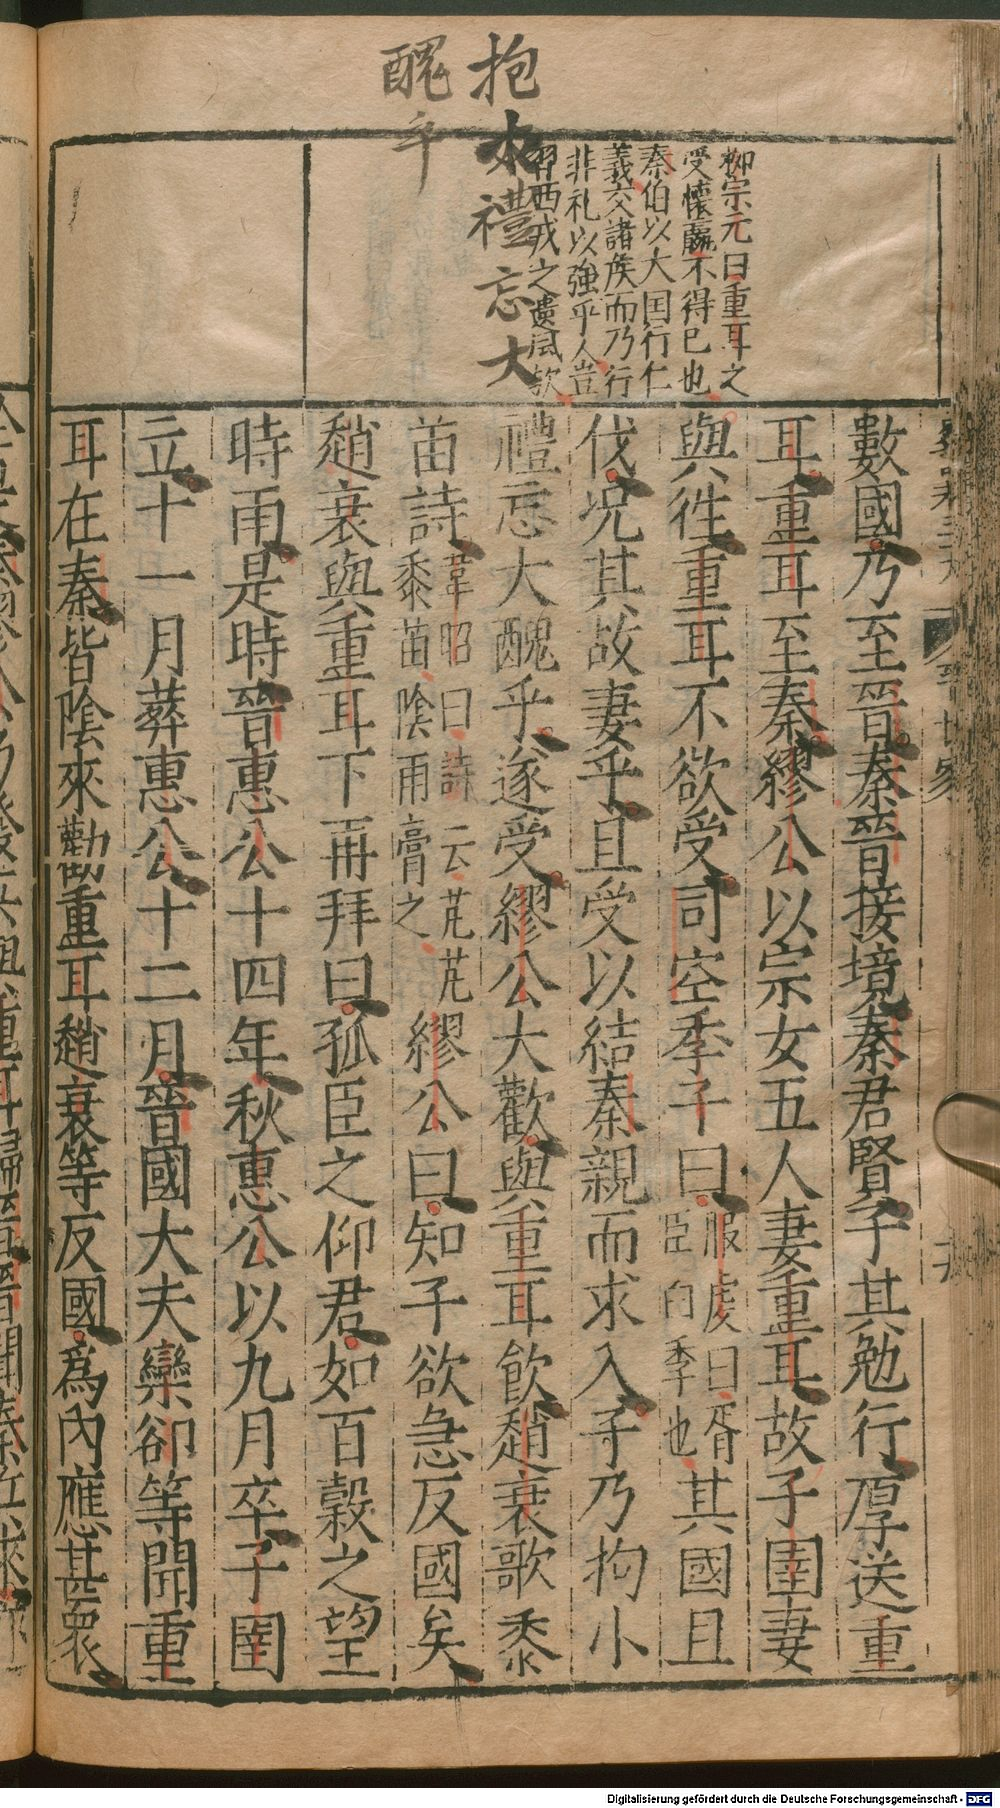 抱小禮忘大
醜乎
柳宗元曰重耳之
受懷嬴不得已也
秦伯以大国行仁
義交諸族而乃行
非礼以強乎人豈
習西戎之遺風歟
數國乃至晉秦晉接境秦君賢子其勉行厚送重
耳重耳至秦繆公以宗女五人妻重耳故子圉妻
與徃重耳不欲受司空季子曰服虔曰胥臣臼季也其國且
伐况其故妻乎且受以結秦親而求入子乃拘小
禮忘大醜乎遂受繆公大歡與重耳飲趙衰歌黍
苗詩韋昭曰詩云芃芃黍苗陰雨膏之繆公曰知子欲急反國矣
趙衰與重耳下再拜曰孤臣之仰君如百穀之望
時雨是時晉惠公十四年秋惠公以九月卒子圉
立十一月葬惠公十二月晉國大夫欒卻等聞重
耳在秦皆陰來勸重耳趙衰等反國爲内應甚衆
Digitalisierung gefördert durch die Deutsche Forschungsgemeinschaft - DFG